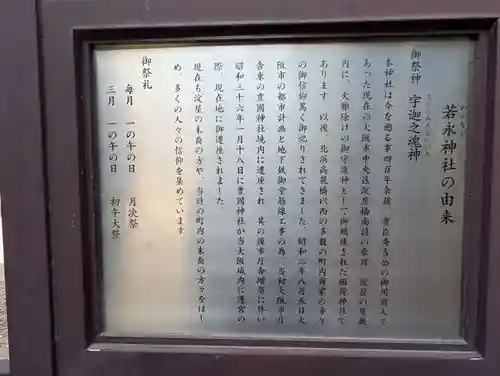 若永神社の由来
御祭神 宇迦之魂神
本神社は今を遡る事四百年余前 豊臣秀吉公の御用商人で
あった現在の大阪市中央区淀屋橋南詰の豪商 淀屋の屋敷
内に、火難除けの御守護神として御鎮座された稲荷神社で
あります 以後、北浜高麗橋以西の多数の町内商家の方々
の御信仰篤く御祀りされてきました、昭和二年八月五日大
阪市の都市計画と地下鉄御堂筋線工事の為、当初大阪市庁
舎東の豊國神社境内に遷座され 其の後市庁舎増築に伴い
昭和三十六年一月十八日に豊國神社が当大阪城内に遷宮の
際、現在地に御遷座されました
現在も淀屋の末裔の方や、当時の町内の末裔の方々をはじ
め、多くの人々の信仰を集めています
御祭礼
毎月 一の午の日 月次祭
三月 一の午の日 初午大祭